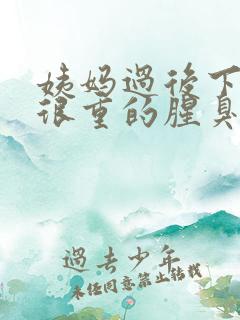 姨妈過後下
很重的腥臭
過去少年
未经同意禁止转载